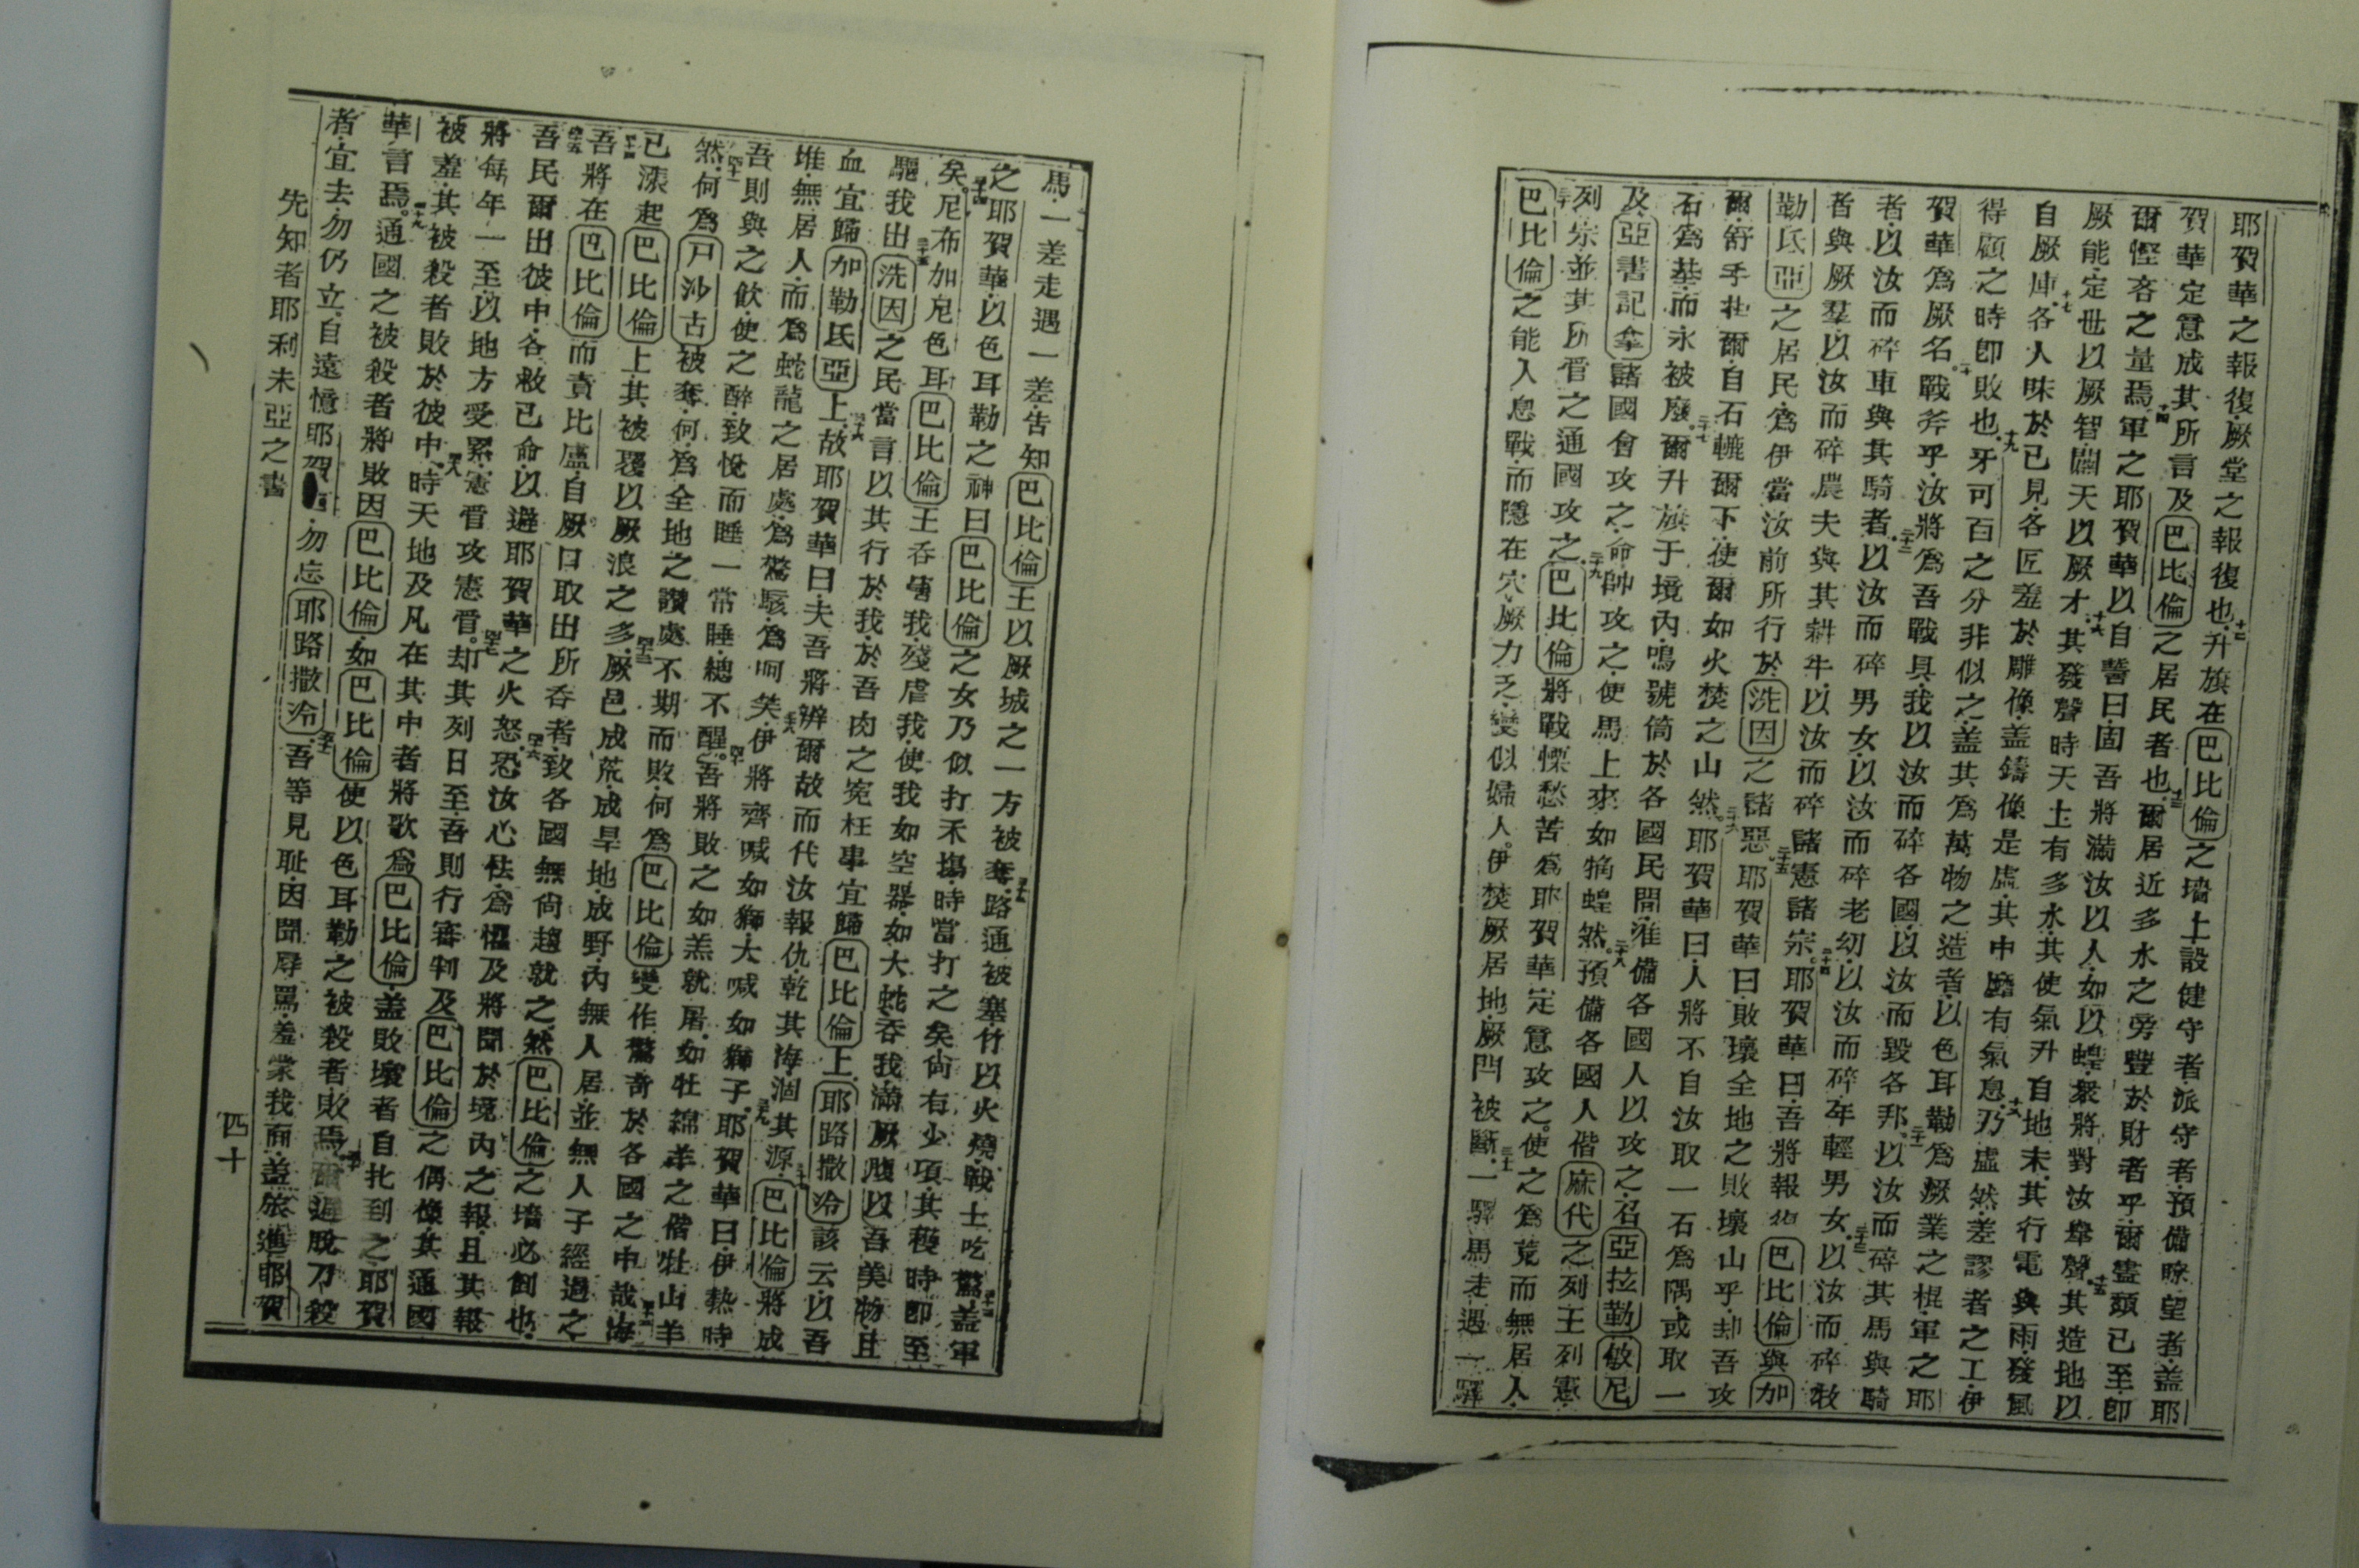 耶賀華之報復厥堂之報復也十二升旗在巴比倫之墻上設健守者派守者預備瞭望者盖耶
賀華定意成其所言及巴比倫之居民者也十三爾居近多水之旁豐於財者乎爾盡頭已至即
爾慳吝之量焉十四軍之耶賀華以自誓曰固吾將滿汝以人如以蝗衆將對汝舉聲十五其造地以
厥能定世以厥智闢天以厥才十六其發聲時天上有多水其使氣升自地末其行電與雨發風
自厥庫十七各人昧於己見各匠羞於雕像盖鑄像是虛其中靡有氣息十八乃虛然差謬者之工伊
得顧之時即敗也十九牙可百之分非似之盖其為萬物之造者以色耳勒為厥業之棍軍之耶
賀華為厥名二十戰斧乎汝將為吾戰具我以汝而碎各國以汝而毀各邦二十一以汝而碎其馬與騎
者以汝而碎車與其騎者二十二以汝而碎男女以汝而碎老幼以汝而碎年輕男女二十三以汝而碎牧
者與厥羣以汝而碎農夫與其耕牛以汝而碎諸憲諸宗二十四耶賀華曰吾將報伯巴比倫與加
勒氐亞之居民為伊當汝前所行於洗因之諸惡二十五耶賀華曰敗壞全地之敗壞山乎却吾攻
爾舒手扯爾自石轆爾下使爾如火焚之山然二十六耶賀華曰人將不自汝取一石為隅或取一
石為基而永被廢二十七爾升旗于境內鳴號筒於各國民間准備各國人以攻之召亞拉勒敏尼
及亞書記拿諸國會攻之命帥攻之使馬上來如𧉃蝗然二十八預備各國人偕麻代之列王列憲
列宗並其所管之通國攻之二十九巴比倫將戰慄愁苦為耶賀華定意攻之使之為荒而無居人
三十巴比倫之能人息戰而隱在穴厥力乏變似婦人伊焚厥居地厥閂被斷三十一一驛馬走遇一驛
馬一差走遇一差告知巴比倫王以厥城之一方被奪三十二路通被塞竹以火燒戰士吃驚三十三盖軍
之耶賀華以色耳勒之神曰巴比倫之女乃似打禾塲時當打之矣尚有少項其穫時即至
矣三十四尼布加尼色耳巴比倫王吞嚼我殘虐我使我如空器如大蛇吞我滿厥腹以吾美物且
驅我出三十五洗因之民當言以其行於我於吾肉之寃枉事宜歸巴比倫上耶路撒冷該云以吾
血宜歸加勒氐亞上三十六故耶賀華曰夫吾將辨爾故而代汝報仇乾其海涸其源三十七巴比倫將成
堆無居人而為蛇龍之居處為驚駭為呵笑三十八伊將齊喊如獅大喊如獅子三十九耶賀華曰伊熱時
吾則與之飲使之醉致悅而睡一常睡總不醒四十吾將敗之如羔就屠如牡綿羊之偕牡山羊
然四十一何為尸沙古被奪何為全地之讚處不期而敗何為巴比倫變作驚奇於各國之中哉四十二海
已漲起巴比倫上其被覆以厥浪之多四十三厥邑成荒成旱地成野內無人居並無人子經過之
四十四吾將在巴比倫而責比盧自厥口取出所吞者致各國無尚趨就之然巴比倫之墻必倒也
四十五吾民爾出彼中各救己命以避耶賀華之火怒四十六恐汝心怯為懼及將聞於境內之報且其報
將每年一至以地方受累憲管攻憲管四十七却其列日至吾則行審判及巴比倫之偶像其通國
被羞其被殺者敗於彼中四十八時天地及凡在其中者將歌為巴比倫盖敗壞者自北到之耶賀
華言焉四十九通國之被殺者將敗因巴比倫如巴比倫使以色耳勒之被殺者敗焉五十爾避脫刀殺
者宜去勿仍立自遠憶耶賀華勿忘耶路撒冷五十一吾等見耻因聞辱罵羞蒙我面盖旅進耶賀
先知者耶利未亞之書
四十